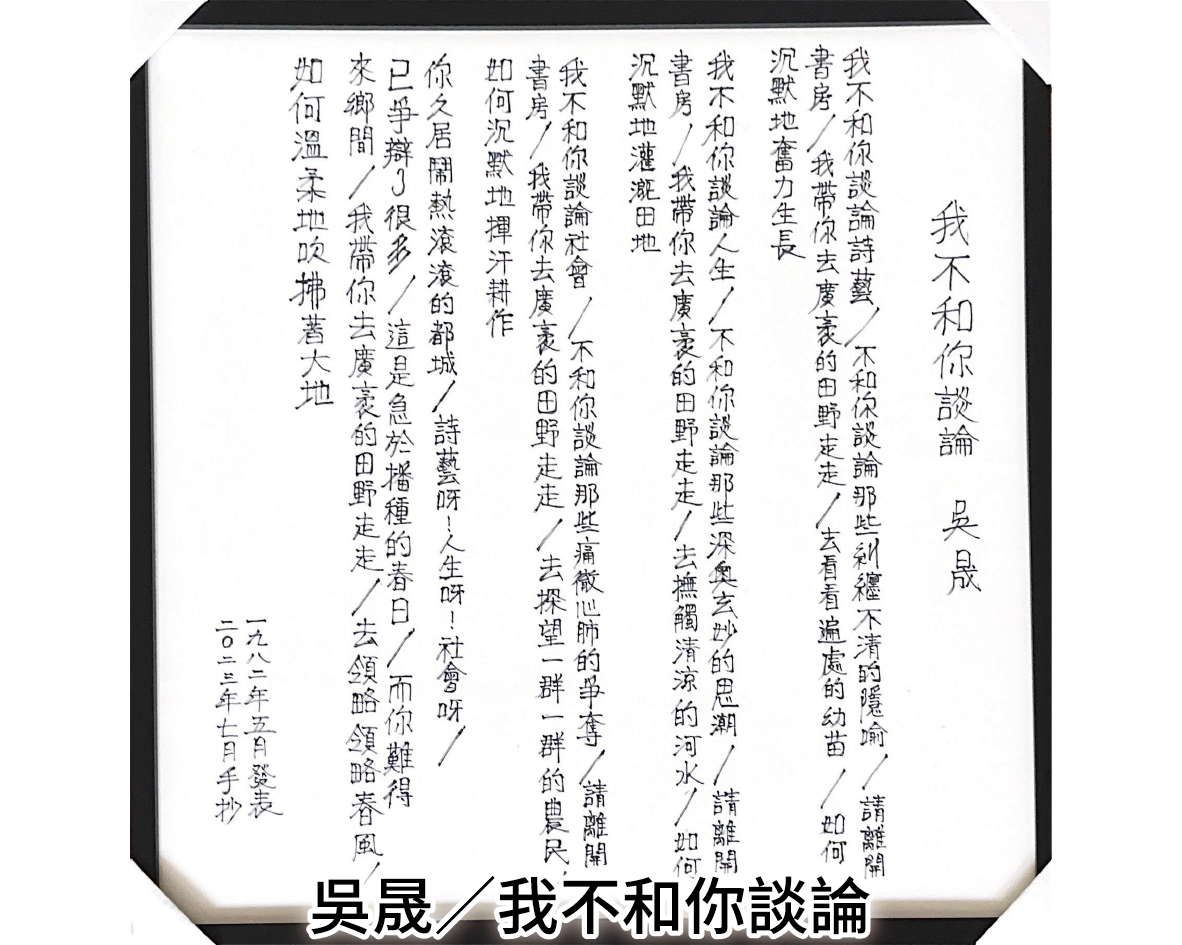 我不和你談論　吳晟
我不和你談論詩藝／不和你談論那些糾纏不清的隱喻／請離開
書房／我帶你去廣袤的田野走走／去看看遍處的幼苗／如何
沉默地奮力生長
我不和你談論人生／不和你談論那些深奧玄妙的思潮／請離開
書房／我帶你去廣袤的田野走走／去撫觸清涼的河水／如何
沉默地灌溉田地
我不和你談論社會／不和你談論那些痛徹心肺的爭奪／請離開
書房／我帶你去廣袤的田野走走／去探望一群一群的農民／
如何沉默地揮汗耕作
你久居鬧熱滾滾的都城／詩藝呀！人生呀！社會呀／
已爭辯了很多／這是急於播種的春日／而你難得
來鄉間／我帶你去廣袤的田野走走／去領略領略春風／
如何溫柔地吹拂著大地
一九八二年五月發表
二〇二三年七月手抄
吳晟／我不和你談論